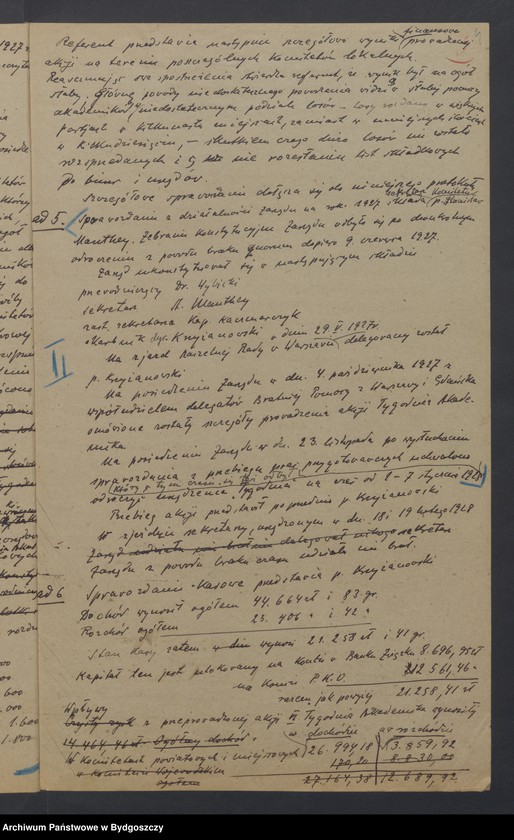 finansowe
Referent przedstawia następnie szczegółowo wyniki prowadzonej
akcji na terenie poszczególnych Komitetów lokalnych.
Reasumując swe spostrzeżenia stwierdza referent, że wynik był na ogół
słaby. Główne powody niedostatecznego powodzenia widzi w słabej pomocy
akademików i niedostatecznym podziale losów – losy rozdano w większych
partjach w kilkunastu miejscach, zamiast w mniejszych ilościach
w kilkudziesięciu, – skutkiem czego dużo losów nie zostało
rozsprzedanych i nie rozesłaniu list składkowych
do biur i urzędów.
Szczegółowe sprawozdanie dołącza się do niniejszego protokółu
ad 5. Sprawozdanie z działalności Zarządu na rok 1927 składa p. Stanisław
Manthey. Zebranie Konstytucyjne Zarządu odbyło się po dwukrotnym
odroczeniu z powodu braku quorum dopiero 9. czerwca 1927.
Zarząd ukonstytuował się w następującym składzie
przewodniczący Dr. Wybicki
sekretarz St. Manthey
zast. sekretarza Kap. Kaczmarczyk
skarbnik dyr. Krzyżanowski
Na zjazd Naczelnej Rady w Warszawie w dniu 29.V.1927r. delegowany został
II
p. Krzyżanowski
Na posiedzeniu Zarządu w dn. 4. października 1927 z
współudziałem delegatów Bratniej Pomocy z Warszawy i Gdańska
omówione zostały szczegóły prowadzenia akcji Tygodnia Akade-
mika
Na posiedzeniu Zarządu w dn. 23. listopada po wysłuchaniu
sprawozdania z przebiegu prac przygotowawczych uchwalono
odroczyć urządzenie Tygodnia na czas od 1 – 7 stycznia 1928
Przebieg akcji przedstawił poprzednio p. Krzyżanowski
W zjeździe sekretarzy, urządzonym w dn. 18 i 19 lutego 1928
Zarząd
Zarządu z powodu braku czasu udziału nie brał.
ad 6 Sprawozdanie Kasowe przedstawia p. Krzyżanowski
Dochód wynosił ogółem 44.664 zł i 83 gr.
Rozchód ogółem 23.406 " i 42 "
Stan kasy zatem w dniu wynosi 21.258 zł i 41 gr.
Kapitał ten jest ulokowany na Koncie w Banku Związku 8.696,95 zł
na Koncie P.K.O. 12.561,46 "
razem jak powyżej 21.258,41 zł
Wpływy
Czysty zysk z przeprowadzonej akcji II Tygodnia Akademika wynosiły
14.464.46 zł Ogólny dochód w dochodzie a w rozchodzie
W Komitetach powiatowych i miejscowych 26.994,18 3.859,92
w komitecie Wojewódzkim 170,20 8.830,00
ogółem 27.164,38 12.689,92
Archiwum Państwowe w Bydgoszczy